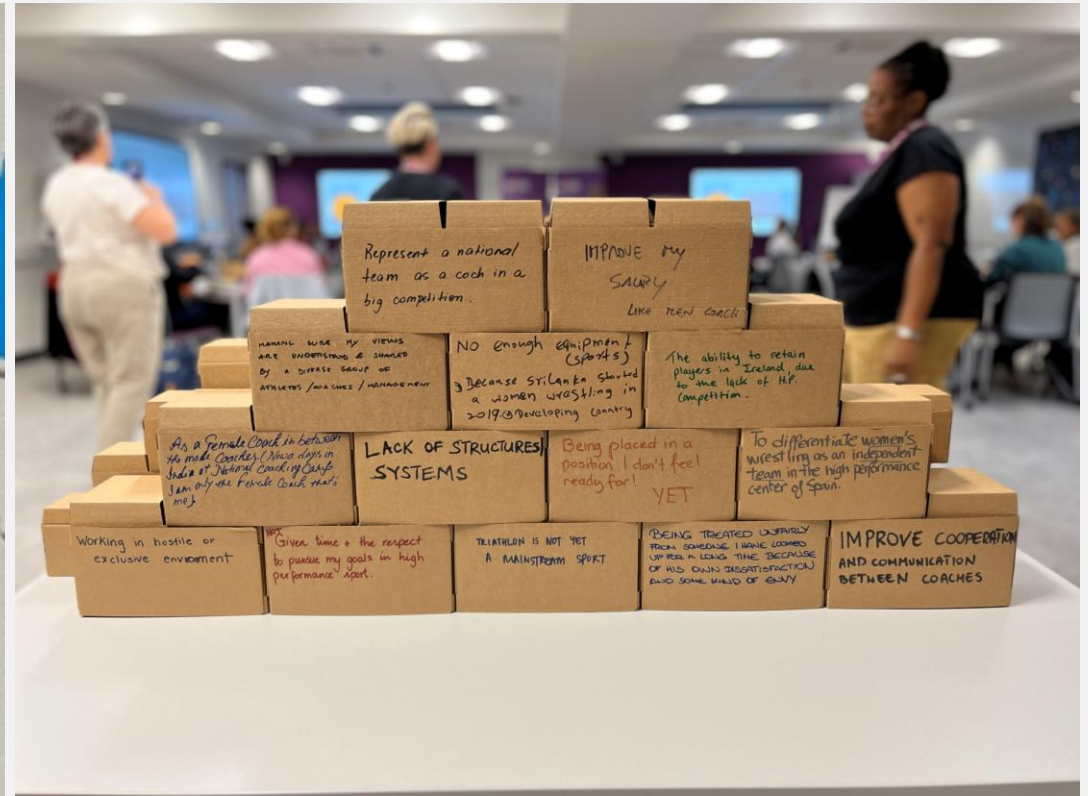 Represent a national
team as a coch in a
big competition.
IMPROVE MY
SALARY
LIKE MEN COACH
MAKING SURE MY VIEWS
ARE UNDERSTOOD & SHARED
BY A DIVERSE GROUP OF
ATHLETES / COACHES / MANAGEMENT
NO enough equipment
(sports)
Because Srilanka started
a women wrestling in
2019. Developing country
The ability to retain
players in Ireland, due
to the lack of H.P.
Competition.
As a Female Coach in between
the male Coaches (Nowa days in
India at National Coaching Camp
I am only the Female Coach that's
me)
LACK OF STRUCTURES/
SYSTEMS
Being placed in a
position I don't feel
ready for!
YET
To differentiate women's
wrestling as an independent
team in the high performance
center of Spain.
Working in hostile or
exclusive enviroment
NOT
Given time + the respect
to pursue my goals in high
performance sport.
TRIATHLON IS NOT YET
A MAINSTREAM SPORT
BEING TREATED UNFAIRLY
FROM SOMEONE I HAVE LOOKED
UP FOR A LONG TIME BECAUSE
OF HIS OWN DISSATISFACTION
AND SOME KIND OF ENVY
IMPROVE COOPERATION
AND COMMUNICATION
BETWEEN COACHES